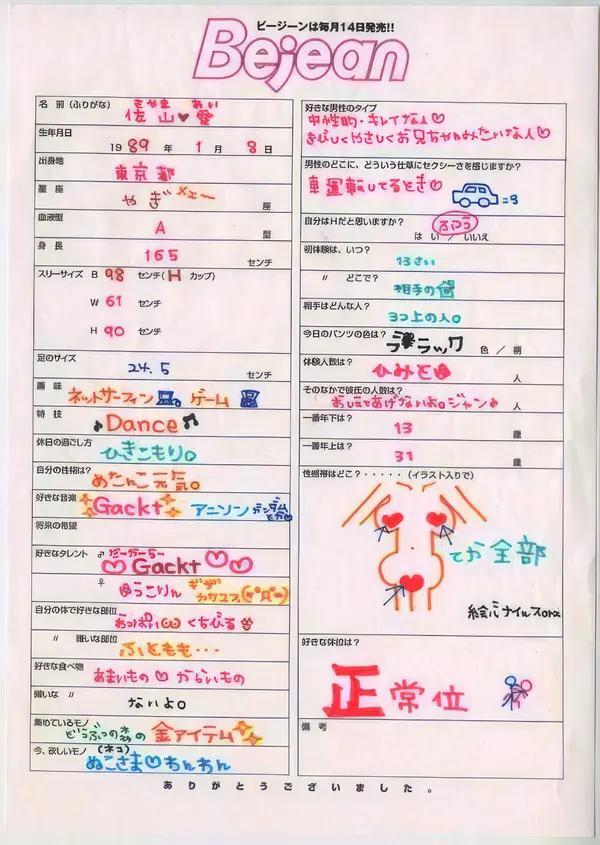 ビージーンは毎月14日発売!!
Bejean
名前(ふりがな) さやま あい
佐山♥愛
生年月日
1989年 1月 8日
出身地
東京都
星座 やぎ メェー 座
血液型 A 型
身長
165 センチ
スリーサイズ B 98 センチ(H カップ)
W 61 センチ
H 90 センチ
足のサイズ
24.5 センチ
趣味
ネットサーフィン ゲーム
特技
♪Dance♫
休日の過ごし方
ひきこもり。
自分の性格は?
めたんこ元気。
好きな音楽
Gackt アニソン
将来の希望
好きなタレント ♂
Gackt♡♡
♀ ゆうこりん
自分の体で好きな部位
おっぱい くちびる
〃 嫌いな部位
ふともも・・・
好きな食べ物
あまいもの♡からいもの
嫌いな 〃
ないよ。
集めているモノ
どうぶつの森の金アイテム
今、欲しいモノ (ネコ)
ぬこさま♡わんわん
好きな男性のタイプ
中性的・キレイな人♡
きびしくやさしくお兄ちゃんみたいな人♡
男性のどこに、どういう仕草にセクシーさを感じますか?
車運転してるとき♡
自分はHだと思いますか? ふつう
はい / いいえ
初体験は、いつ?
13さい
〃 どこで?
相手の家
相手はどんな人?
3つ上の人。
今日のパンツの色は?
ブラック 色 / 柄
体験人数は?
ひみと 人
そのなかで彼氏の人数は?
おしえてあげないよ。ジャン♪ 人
一番年下は?
13 歳
一番年上は?
31 歳
性感帯はどこ?・・・・・(イラスト入りで)
てか全部
好きな体位は?
正常位
備考
ありがとうございました。